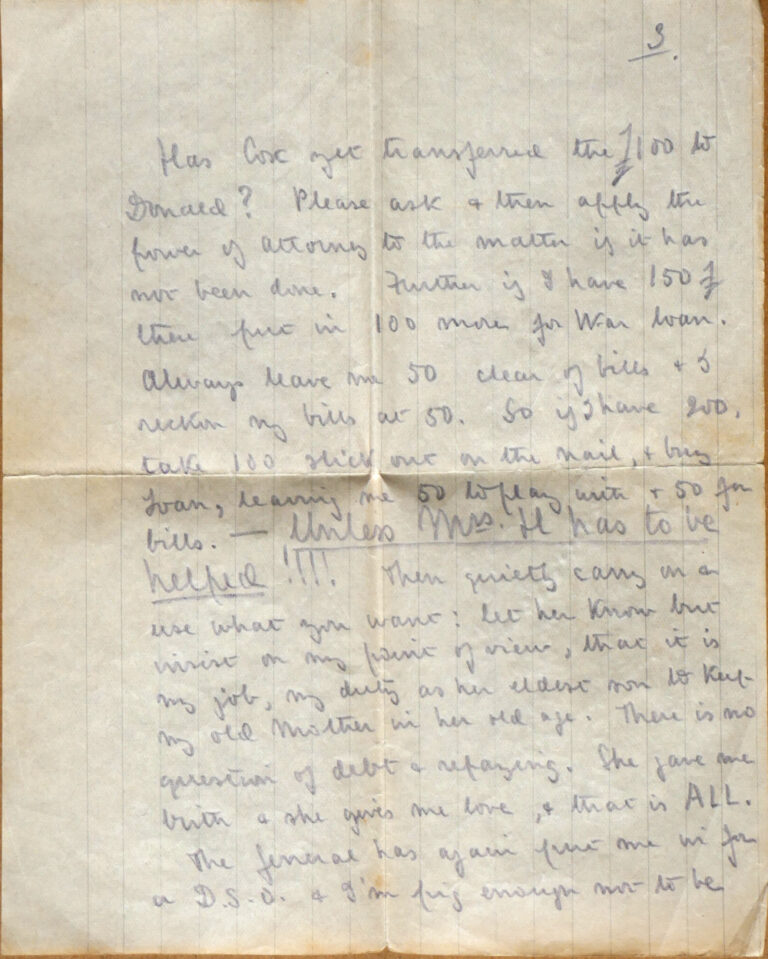 3.
Has Cox yet transferred the £100 to
Donald? Please ask & then apply the
power of attorney to the matter if it has
not been done. Further if I have 150£
then put in 100 more for War Loan.
Always leave me 50 clear of bills & I
reckon my bills at 50. So if I have 200,
take 100 slick out on the nail, & buy
Loan, leaving me 50 to play with & 50 for
bills. — Unless Mrs. H has to be
helped !!!! Then quietly carry on &
use what you want: let her know but
insist on my point of view, that it is
my job, my duty as her eldest son to keep
my old Mother in her old age. There is no
question of debt & repaying. She gave me
birth & she gives me love, & that is ALL.
The General has again put me in for
a D.S.O. & I'm pig enough not to be